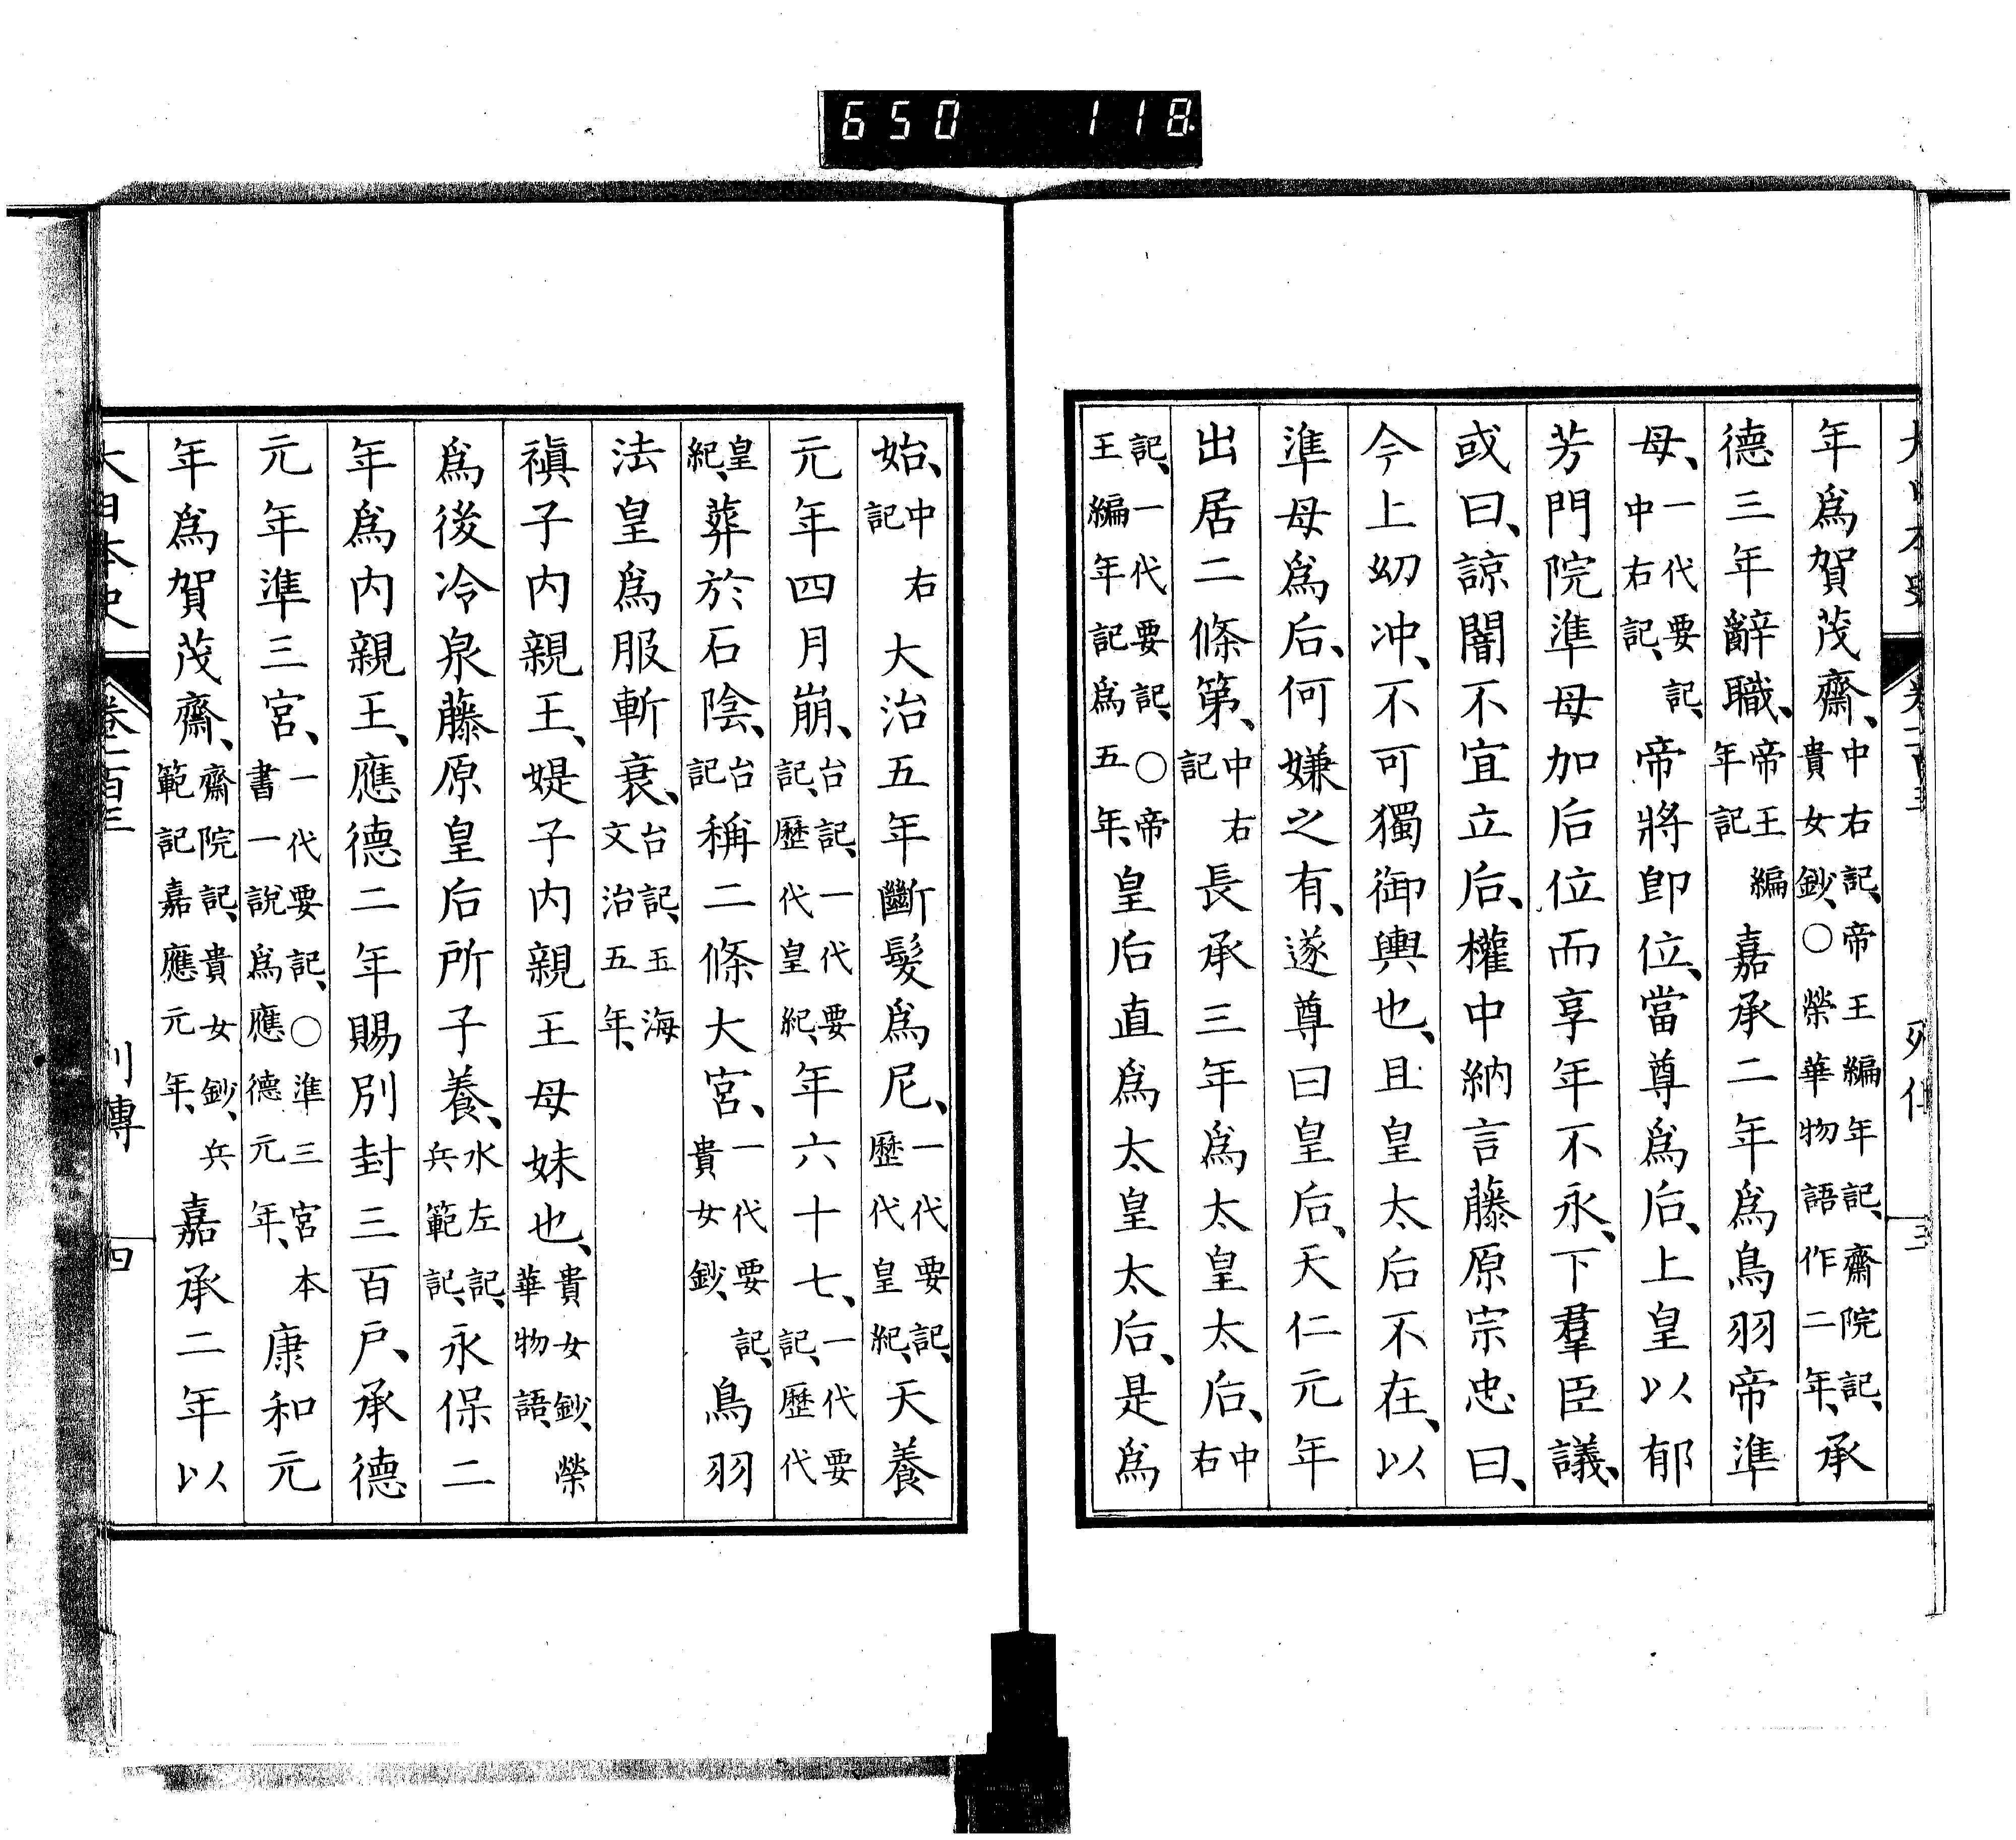 650 118
年爲賀茂齋、中右記、帝王編年記、齋院記、貴女鈔、○榮華物語作二年、承
德三年辭職、帝王編年記嘉承二年爲鳥羽帝準
母、一代要記、中右記、帝將卽位、當尊爲后、上皇以郁
芳門院準母加后位而享年不永、下羣臣議、
或曰、諒闇不宜立后、權中納言藤原宗忠曰、
今上幼冲、不可獨御輿也、且皇太后不在、以
準母爲后、何嫌之有、遂尊曰皇后、天仁元年
出居二條第、中右記長承三年爲太皇太后、中右
記、一代要記、○帝王編年記爲五年、皇后直爲太皇太后、是爲
始、中右記大治五年斷髮爲尼、一代要記、歷代皇紀、天養
元年四月崩、台記、一代要記、歷代皇紀、年六十七、一代要記、歷代
皇紀、葬於石陰、台記稱二條大宮、一代要記、貴女鈔、鳥羽
法皇爲服斬衰、台記、玉海文治五年、
禛子内親王、媞子内親王母妹也、貴女鈔、榮華物語、
爲後冷泉藤原皇后所子養、水左記、兵範記、永保二
年爲内親王、應德二年賜別封三百戶、承德
元年準三宮、一代要記、○準三宮本書一說爲應德元年、康和元
年爲賀茂齋、齋院記、貴女鈔、兵範記嘉應元年、嘉承二年以
大日本史 卷一百三 列傳 四